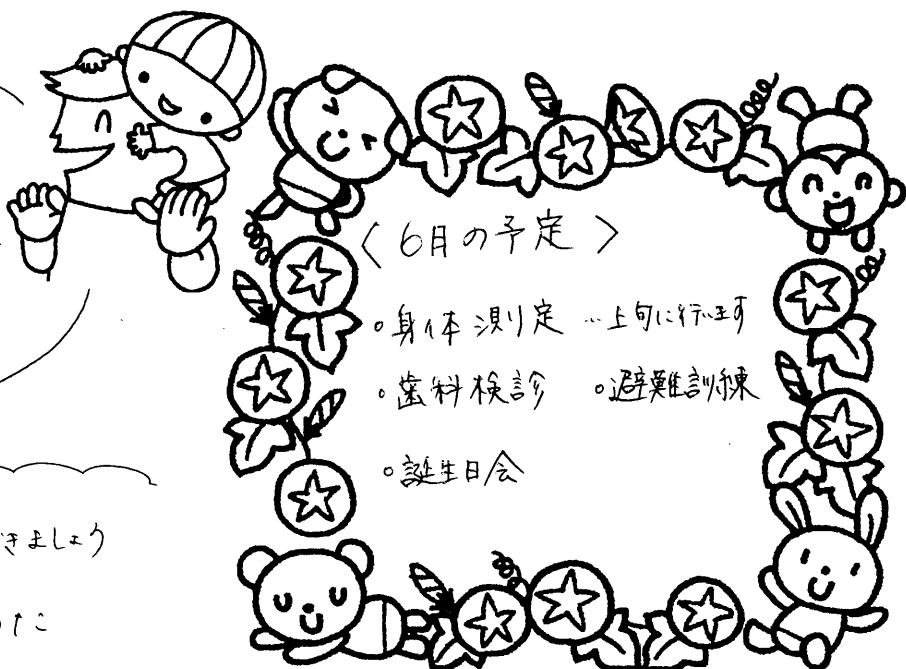 〈 6月の予定 〉
○身体測定 …上旬に行います
○歯科検診 ○避難訓練
○誕生日会
きましょう
た